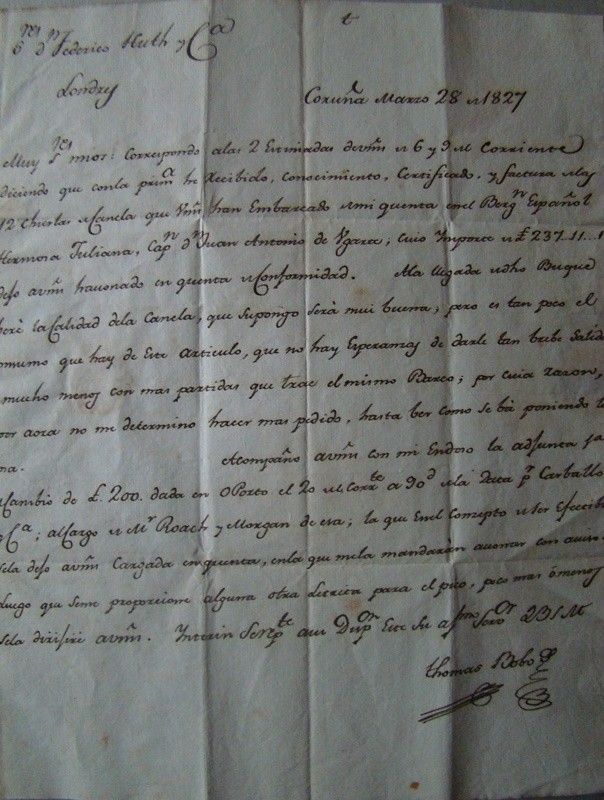 Sres Dn Federico Huth y Ca
Londres
Coruña Marzo 28 de 1827
Muy Sres mios: Correspondo a las 2 Estimadas de vms de 6 y 9 del Corriente
diciendo que con la primra he Recibido, Conocimiento, Certificado, y factura de las
12 Churlas de Canela que Vms han Embarcado de mi quenta en el Bergn Español
Hermosa Juliana, Capn Dn Juan Antonio de Ygarza; cuio Importe de £ 237..11..1
dejo a vms havonado en quenta de Conformidad. A la llegada de dho Buque
veré la Calidad de la Canela, que Supongo será mui buena; pero es tan poco el
consumo que hay de Este Articulo, que no hay Esperanzas de darle tan brebe Salida
mucho menos con mas partidas que trae el mismo Barco; por cuia razon,
por aora no me determino hacer mas pedido, hasta ber como se bá poniendo
Acompaño a vms con mi Endoso la adjunta
Cambio de £. 200. dada en OPorto el 20 del Corrte a 90 d de la data pr Carballo
y Ca; al Cargo de Mrs Roach y Morgan de esa; la que En el Conzepto de ser Efectiba
sela dejo a vms Cargada en quenta, en la que me la mandarán avonar con aviso
Luego que se me proporcione alguna otra Letrita para el pico, poco mas ó menos
sela dirijiré a vms. Interin Se Repte a su Dispon Este Su afmo Seror QBSM
Thomas Bobo